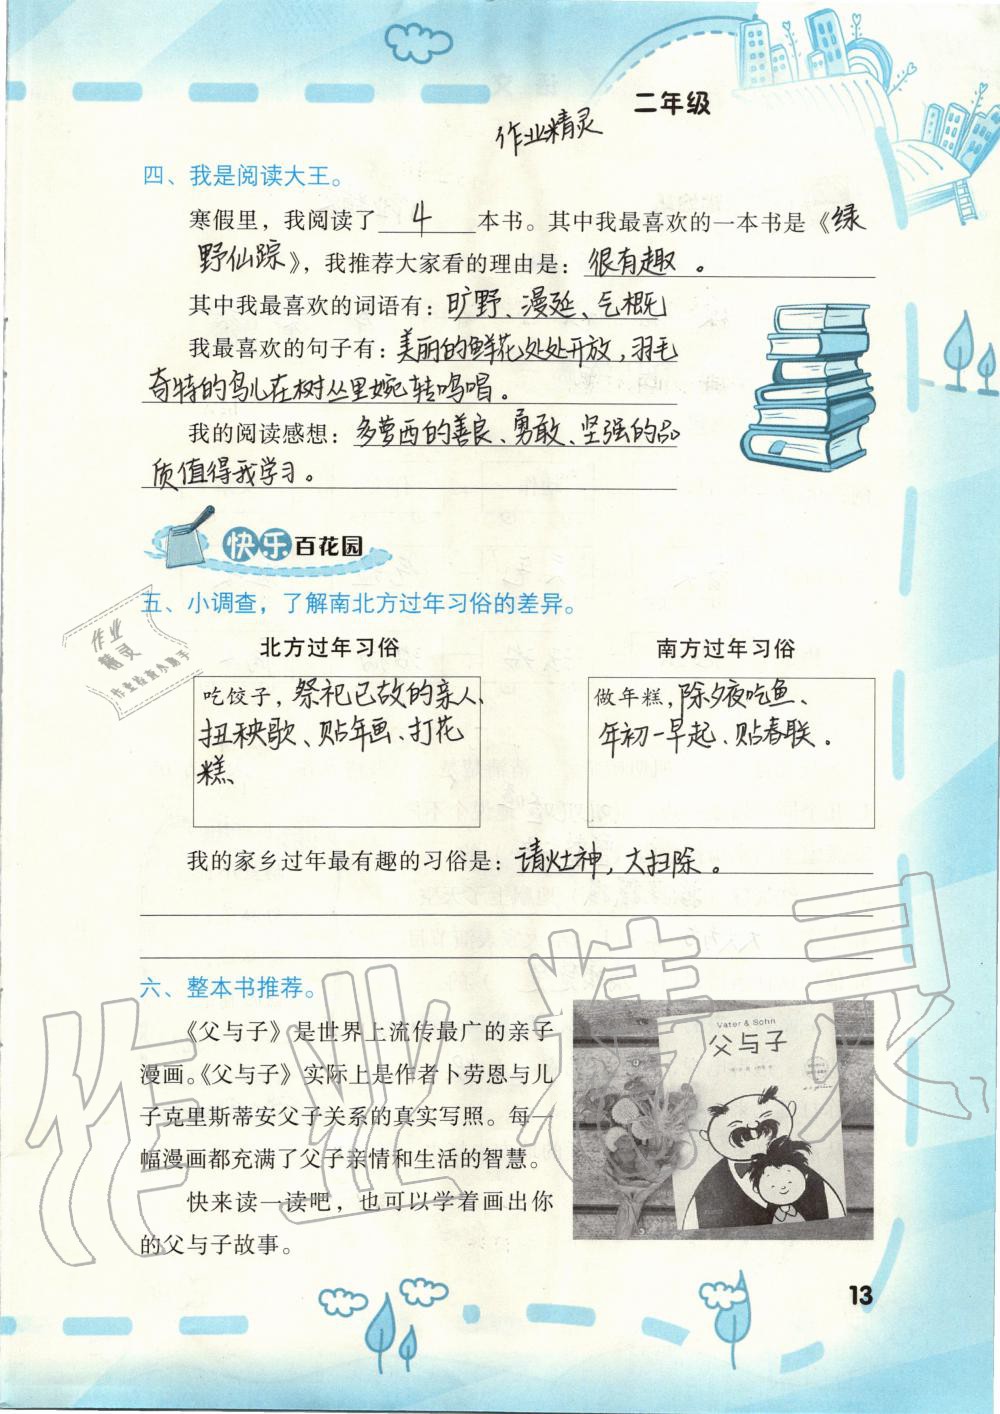 二年级
作业精灵
四、我是阅读大王。
寒假里，我阅读了 4 本书。其中我最喜欢的一本书是《绿
野仙踪》，我推荐大家看的理由是：很有趣。
其中我最喜欢的词语有：旷野、漫延、气概
我最喜欢的句子有：美丽的鲜花处处开放，羽毛
奇特的鸟儿在树丛里婉转鸣唱。
我的阅读感想：多萝西的善良、勇敢、坚强的品
质值得我学习。
快乐百花园
五、小调查，了解南北方过年习俗的差异。
北方过年习俗
南方过年习俗
吃饺子，祭祀已故的亲人、
扭秧歌、贴年画、打花
糕、
做年糕，除夕夜吃鱼、
年初一早起、贴春联。
我的家乡过年最有趣的习俗是：请灶神，大扫除。
六、整本书推荐。
《父与子》是世界上流传最广的亲子
漫画。《父与子》实际上是作者卜劳恩与儿
子克里斯蒂安父子关系的真实写照。每一
幅漫画都充满了父子亲情和生活的智慧。
快来读一读吧，也可以学着画出你
的父与子故事。
Vater & Sohn
父与子
13
作业
精灵
作业检查小助手
作业精灵